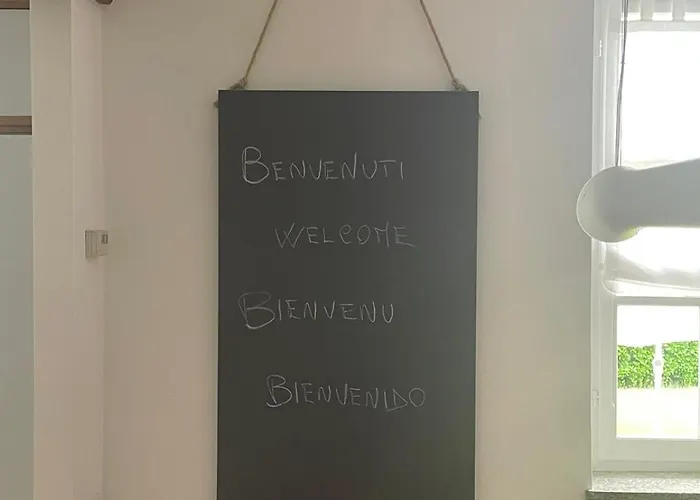 BENVENUTI
WELCOME
BIENVENU
BIENVENIDO